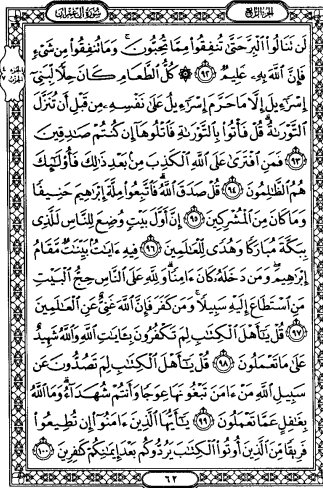 الجزء الرابع
سورة آل عمران
لَن تَنَالُوا۟ ٱلْبِرَّ حَتَّىٰ تُنفِقُوا۟ مِمَّا تُحِبُّونَ ۚ وَمَا تُنفِقُوا۟ مِن شَىْءٍ
فَإِنَّ ٱللَّهَ بِهِۦ عَلِيمٌ ﴿٩٢﴾ ۞ كُلُّ ٱلطَّعَامِ كَانَ حِلًّا لِّبَنِىٓ
إِسْرَٰٓءِيلَ إِلَّا مَا حَرَّمَ إِسْرَٰٓءِيلُ عَلَىٰ نَفْسِهِۦ مِن قَبْلِ أَن تُنَزَّلَ
ٱلتَّوْرَىٰةُ ۗ قُلْ فَأْتُوا۟ بِٱلتَّوْرَىٰةِ فَٱتْلُوهَآ إِن كُنتُمْ صَٰدِقِينَ
﴿٩٣﴾ فَمَنِ ٱفْتَرَىٰ عَلَى ٱللَّهِ ٱلْكَذِبَ مِنۢ بَعْدِ ذَٰلِكَ فَأُو۟لَٰٓئِكَ
هُمُ ٱلظَّٰلِمُونَ ﴿٩٤﴾ قُلْ صَدَقَ ٱللَّهُ ۗ فَٱتَّبِعُوا۟ مِلَّةَ إِبْرَٰهِيمَ حَنِيفًا
وَمَا كَانَ مِنَ ٱلْمُشْرِكِينَ ﴿٩٥﴾ إِنَّ أَوَّلَ بَيْتٍ وُضِعَ لِلنَّاسِ لَلَّذِى
بِبَكَّةَ مُبَارَكًا وَهُدًى لِّلْعَٰلَمِينَ ﴿٩٦﴾ فِيهِ ءَايَٰتٌۢ بَيِّنَٰتٌ مَّقَامُ
إِبْرَٰهِيمَ ۖ وَمَن دَخَلَهُۥ كَانَ ءَامِنًا ۗ وَلِلَّهِ عَلَى ٱلنَّاسِ حِجُّ ٱلْبَيْتِ
مَنِ ٱسْتَطَاعَ إِلَيْهِ سَبِيلًا ۚ وَمَن كَفَرَ فَإِنَّ ٱللَّهَ غَنِىٌّ عَنِ ٱلْعَٰلَمِينَ
﴿٩٧﴾ قُلْ يَٰٓأَهْلَ ٱلْكِتَٰبِ لِمَ تَكْفُرُونَ بِـَٔايَٰتِ ٱللَّهِ وَٱللَّهُ شَهِيدٌ
عَلَىٰ مَا تَعْمَلُونَ ﴿٩٨﴾ قُلْ يَٰٓأَهْلَ ٱلْكِتَٰبِ لِمَ تَصُدُّونَ عَن
سَبِيلِ ٱللَّهِ مَنْ ءَامَنَ تَبْغُونَهَا عِوَجًا وَأَنتُمْ شُهَدَآءُ ۗ وَمَا ٱللَّهُ
بِغَٰفِلٍ عَمَّا تَعْمَلُونَ ﴿٩٩﴾ يَٰٓأَيُّهَا ٱلَّذِينَ ءَامَنُوٓا۟ إِن تُطِيعُوا۟
فَرِيقًا مِّنَ ٱلَّذِينَ أُوتُوا۟ ٱلْكِتَٰبَ يَرُدُّوكُم بَعْدَ إِيمَٰنِكُمْ كَٰفِرِينَ ﴿١٠٠﴾
٦٢